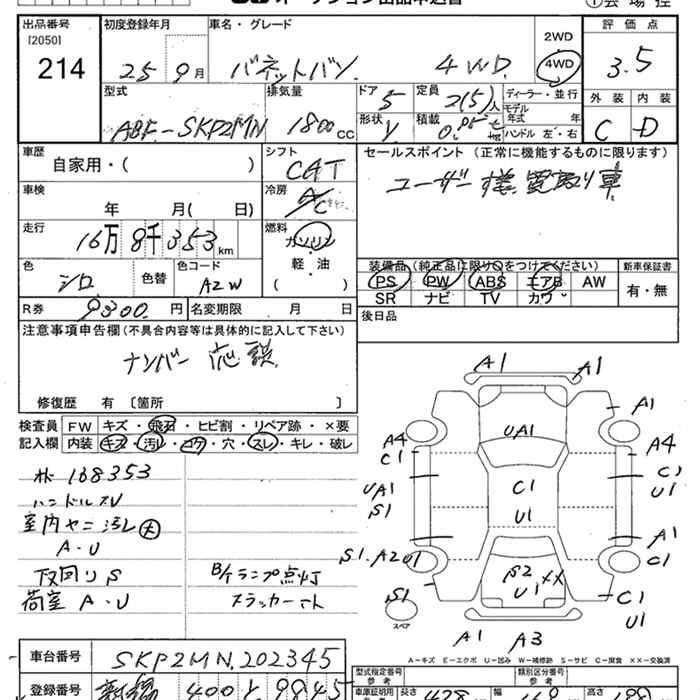 出品番号
[2050]
214
初度登録年月
25 9月
車名・グレード
バネットバン 4WD
2WD
4WD
評価点
3.5
型式
ABF-SKP2MN
排気量
1800cc
ドア
5
定員
2(5)人
形状
V
積載
ディーラー・並行
モデル年式 年
ハンドル 左・右
外装
C
内装
D
車歴
自家用・( )
シフト
CAT
セールスポイント (正常に機能するものに限ります)
ユーザー様買取り車
車検
年 月( 日)
冷房
AC
走行
16万8千353km
燃料
ガソリン
軽・油
( )
色
シロ
色替
色コード
A2W
装備品(純正品に限り○をつけてください)
PS PW ABS エアB AW
SR ナビ TV カワ
新車保証書
有・無
R券
9300円
名変期限 月 日
後日品
注意事項申告欄(不具合内容等は具体的に記入して下さい)
ナンバー応談
修復歴 有 〔箇所 〕
検査員
記入欄
FW キズ・飛石・ヒビ割・リペア跡・×要
内装 キズ・汚レ・コゲ・穴・スレ・キレ・破レ
168353
ハンドルスレ
室内ヤニ汚レ大
A・U
下回りS
荷室 A・U
B/Kランプ点灯
A1
A1
A1
UA1
A4
C1
A4
C1
U1
UA1
S1
C1
U1
A1
C1
S1.A2U1
S2 XX
U1
S1
スペア
C1
U1
A1
A3
A-キズ E-エクボ U-凹み W-補修跡 S-サビ C-腐食 XX-交換済
車台番号
SKP2MN.202345
型式指定番号
類別区分番号
登録番号
400 9845
車庫証明用
参考
長さ
428
幅
参考
高さ